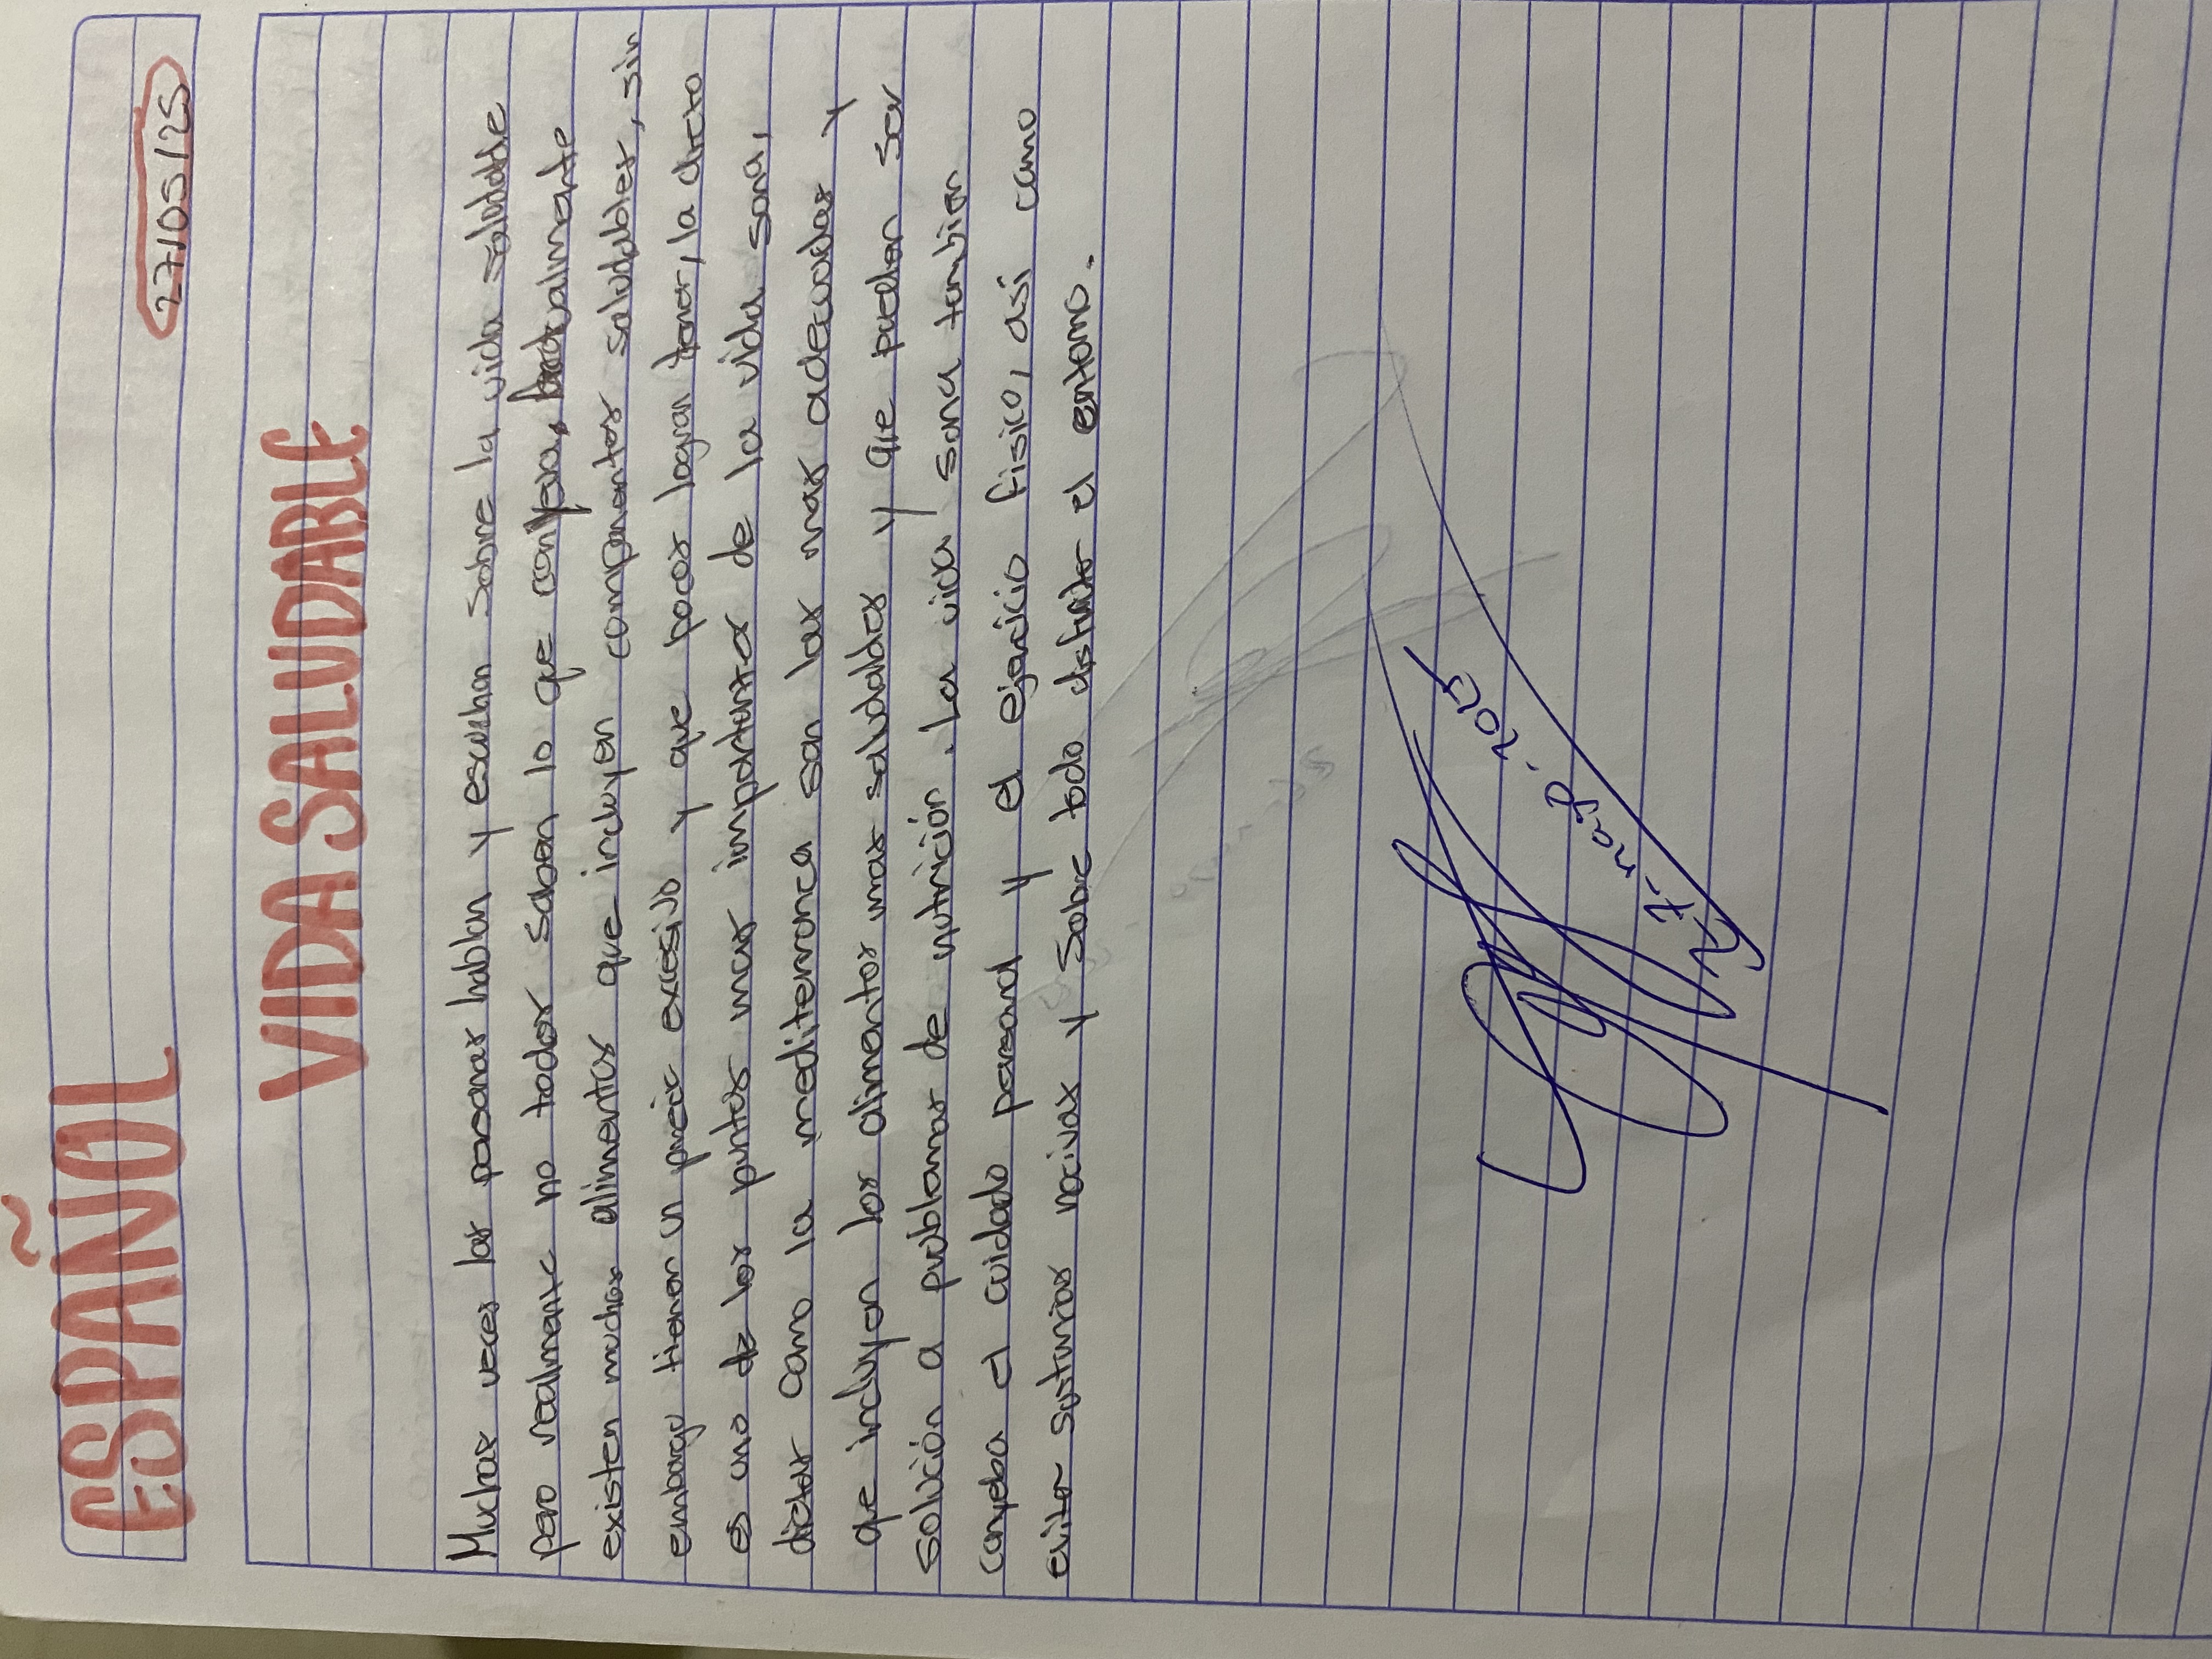 ESPAÑOL
27/05/25
VIDA SALUDABLE
Muchas veces las pesonas hablan y escuchan sobre la vida saludable
pero realmente no todos saben lo que conlleva, actualmente
existen muchos alimentos que incluyen componentes saludables, sin
embargo tienen un precio excesivo y que pocos logran tener, la dieta
es uno de los puntos mas importantes de la vida sana,
dietas como la mediterranea son las mas adecuadas y
que incluyen los alimentos mas saludables y que pueden ser
solución a problemas de nutrición. La vida sana tambien
conlleva el cuidado personal y el ejercicio fisico, asi como
evitar sustancias nocivas y sobre todo disfrutar el entorno.
27-mayo-2025